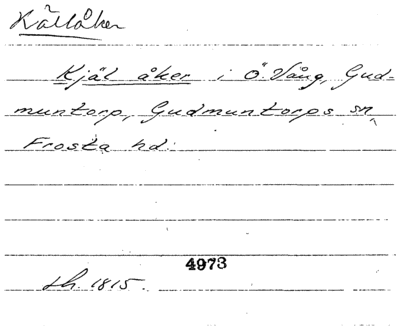 Källåker
Kjäl åker i Ö. Vång, Gud-
muntorp, Gudmuntorps sn,
Frosta hd.
4973
sh. 1815.